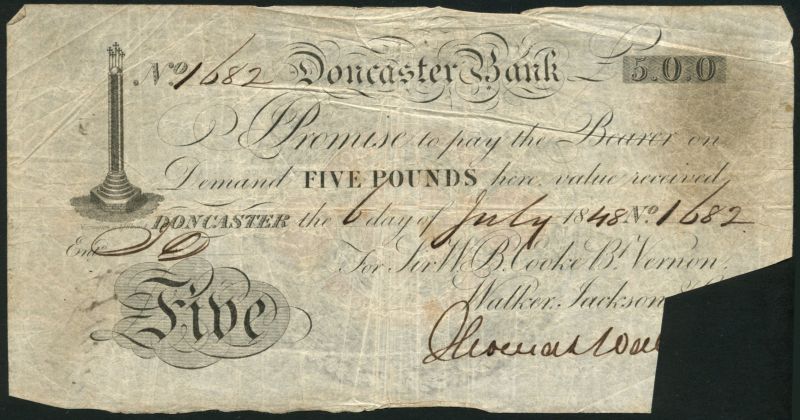 No 1682 Doncaster Bank £ 5.0.0
I Promise to pay the Bearer on
Demand FIVE POUNDS here, value received,
DONCASTER the 6 day of July 1848 No. 1682
Entd
For Sir W. B. Cooke Bt. Vernon,
Walker, Jackson
Five
Thomas Wal